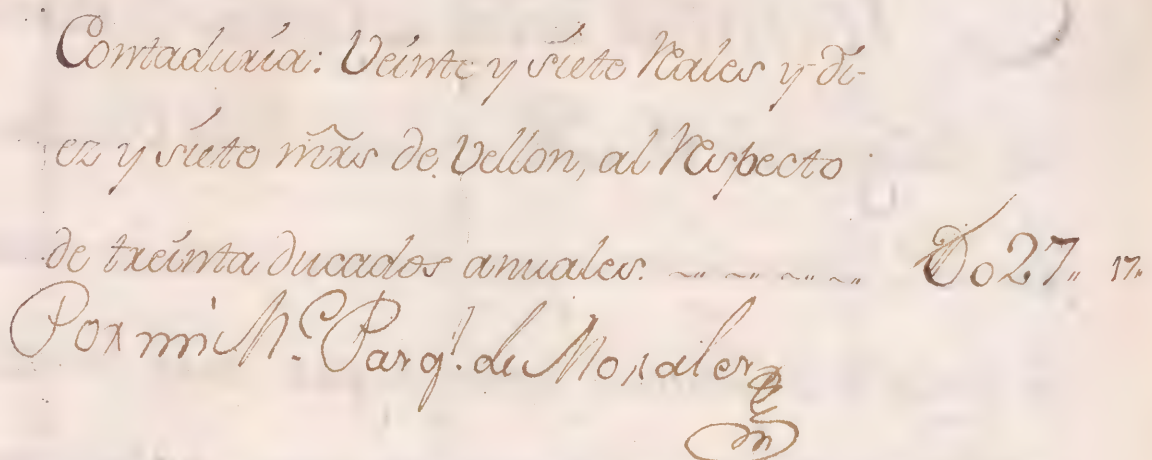 Contaduria: Veinte y siete Reales y di-
ez y siete mrs de Vellon, al Respecto
de treinta ducados anuales. ~ ~ ~ ~ Do27,, 17,,
Por mi M.e Pasq.l de Morales